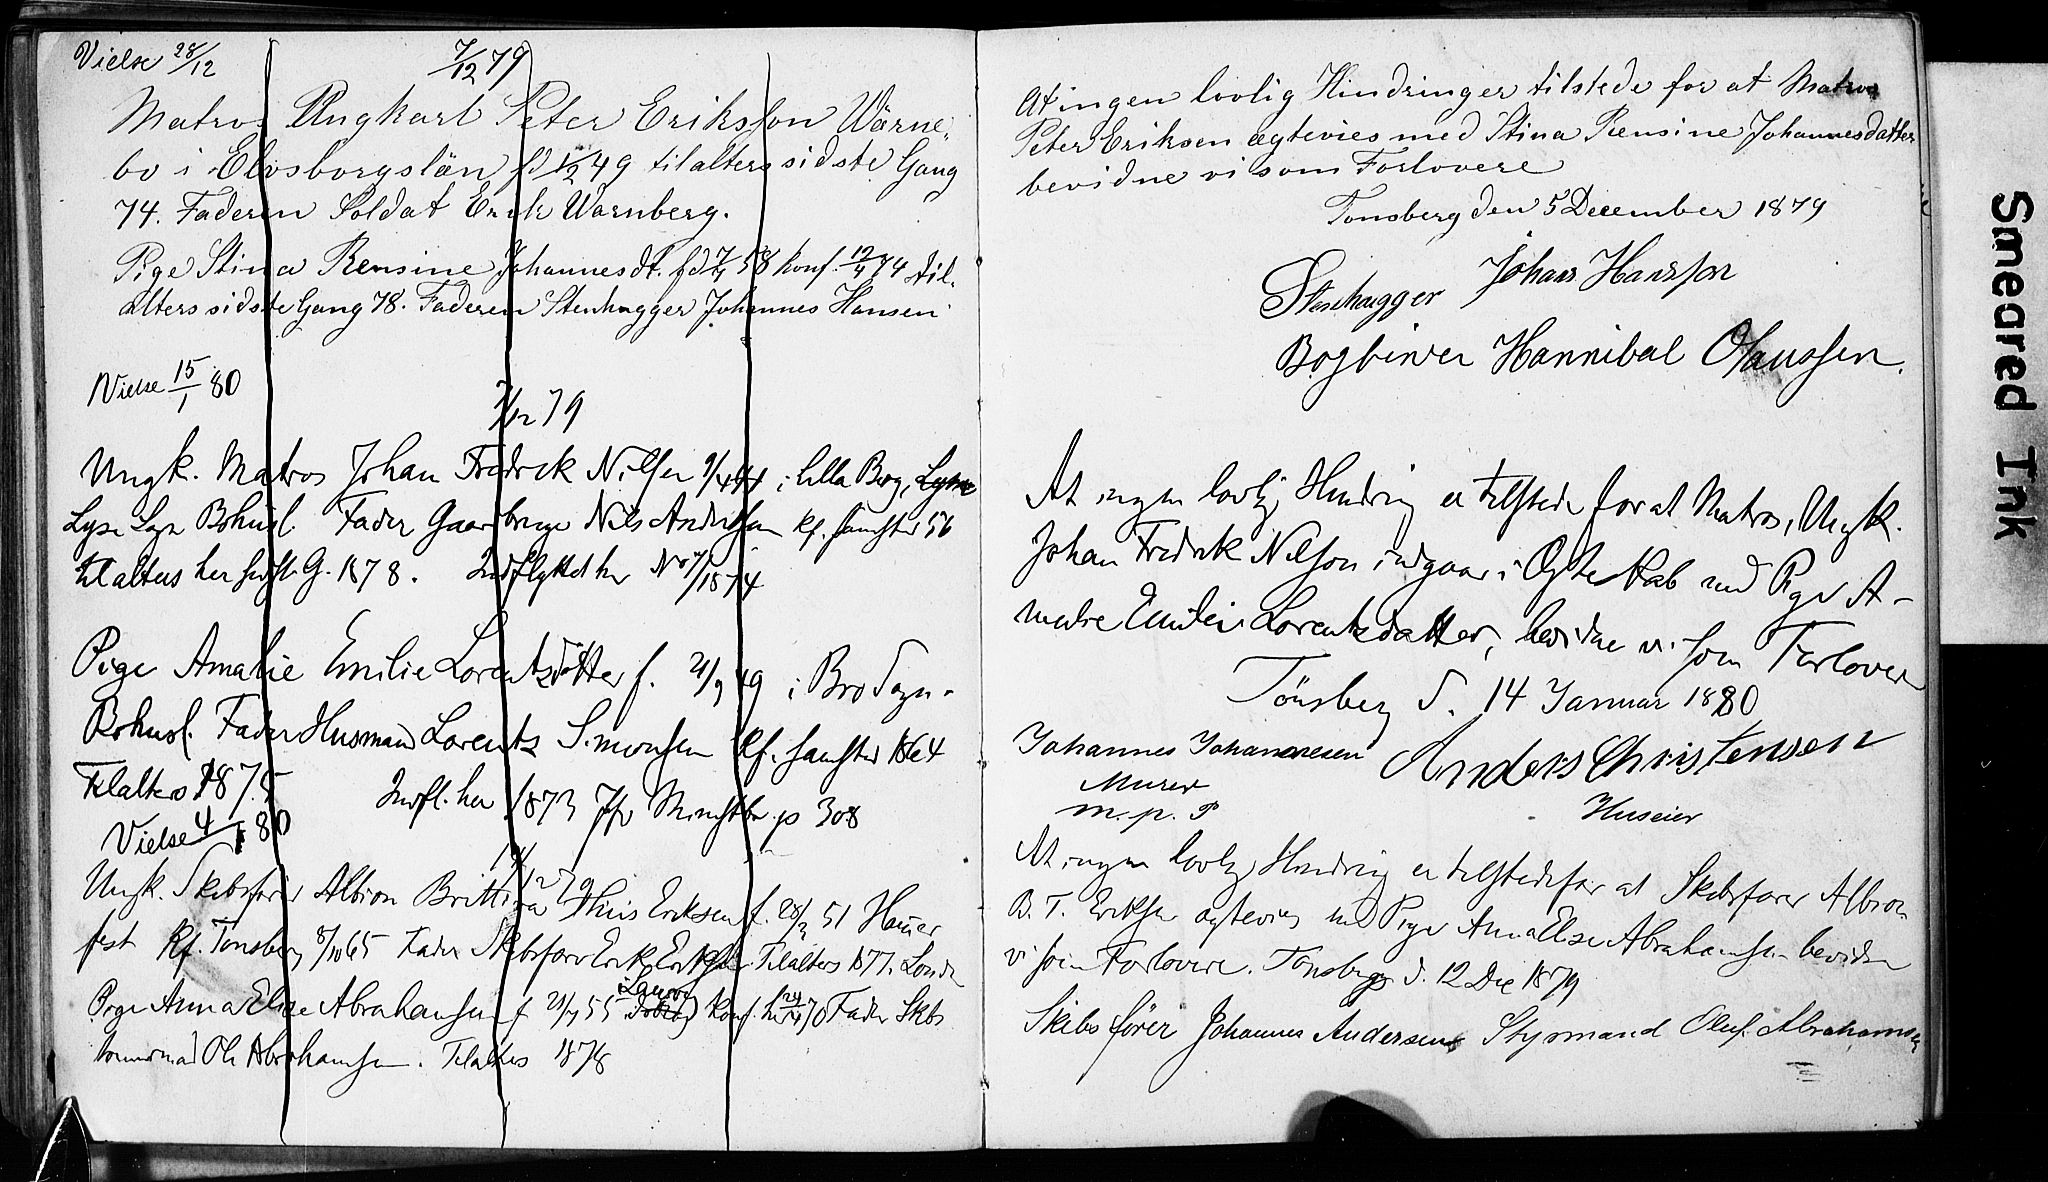 Vielse 28/12
7/12 79
Matros Ungkarl Peter Eriksson Wärne-
bo i Elvsborgslän fd 1/2 49 tilalters sidste Gang
74. Faderen Soldat Erik Warnberg.
Pige Stina Rensine Johannesdt. fd 7/7 58 konf. 12/4 74 til-
alters sidste Gang 78. Faderen Stenhugger Johannes Hansen
Vielse 15/1 80
7/12 79
Ungk. Matros Johan Fredrek Nilsen 9/4 44 i Lilla Berg,
Lyse Bohusl. Fader Gaardbruger Nils Andersen kf. sammested 56
tilalters her sidst. G. 1878. Indflyttet her No 7/1874
Pige Amalie Emilie Lorentzdatter f. 21/9 49 i Bro Sogn.
Bohusl. Fader Husmand Lorentz Simonsen kf. sammested 1864
Tilalters 1875 Indfl. her 1873 Jfr Minstbr. p 308
Vielse 4/1 80
14/12 79
Ungk. Skibsfører Albion Brittina Thiis Eriksen f. 28/2 51
fest kf. Tønsberg 8/10 65 Fader Skibsfører Erik Eriksen Tilalters 1877.
Pige Anna Elise Abrahamsen f 21/7 55 konf. her 24/4 70 Fader Skibs
tømmermand Ole Abrahamsen. Tilalters 1878
At ingen lovlig Hindringer tilstede for at Matros
Peter Eriksen ægtevies med Stina Rensine Johannesdatter
bevidne vi som Forlovere
Tønsberg den 5 December 1879
Johan Hansson
Stenhugger
Bogbinder Hannibal Olaussen.
At ingen lovlig Hindring er tilstede for at Matros, Ungk.
Johan Fredrek Nilsson indgaar i Ægteskab med Pige A-
malie Emilie Lorentzdatter, bevidne vi som Forlovere
Tönsberg d. 14 Januar 1880
Johannes Johannesen Anders Christensen
Murer
m. p. P Huseier
At ingen lovlig Hindring er tilstede for at Skibsfører Albion
B. T. Eriksen ægtevies med Pige Anna Elise Abrahamsen bevidne
vi som Forlovere. Tønsberg d. 12 Dec 1879
Skibsfører Johannes Andersen Styrmand Oluf Abrahamsen
Smeared Ink